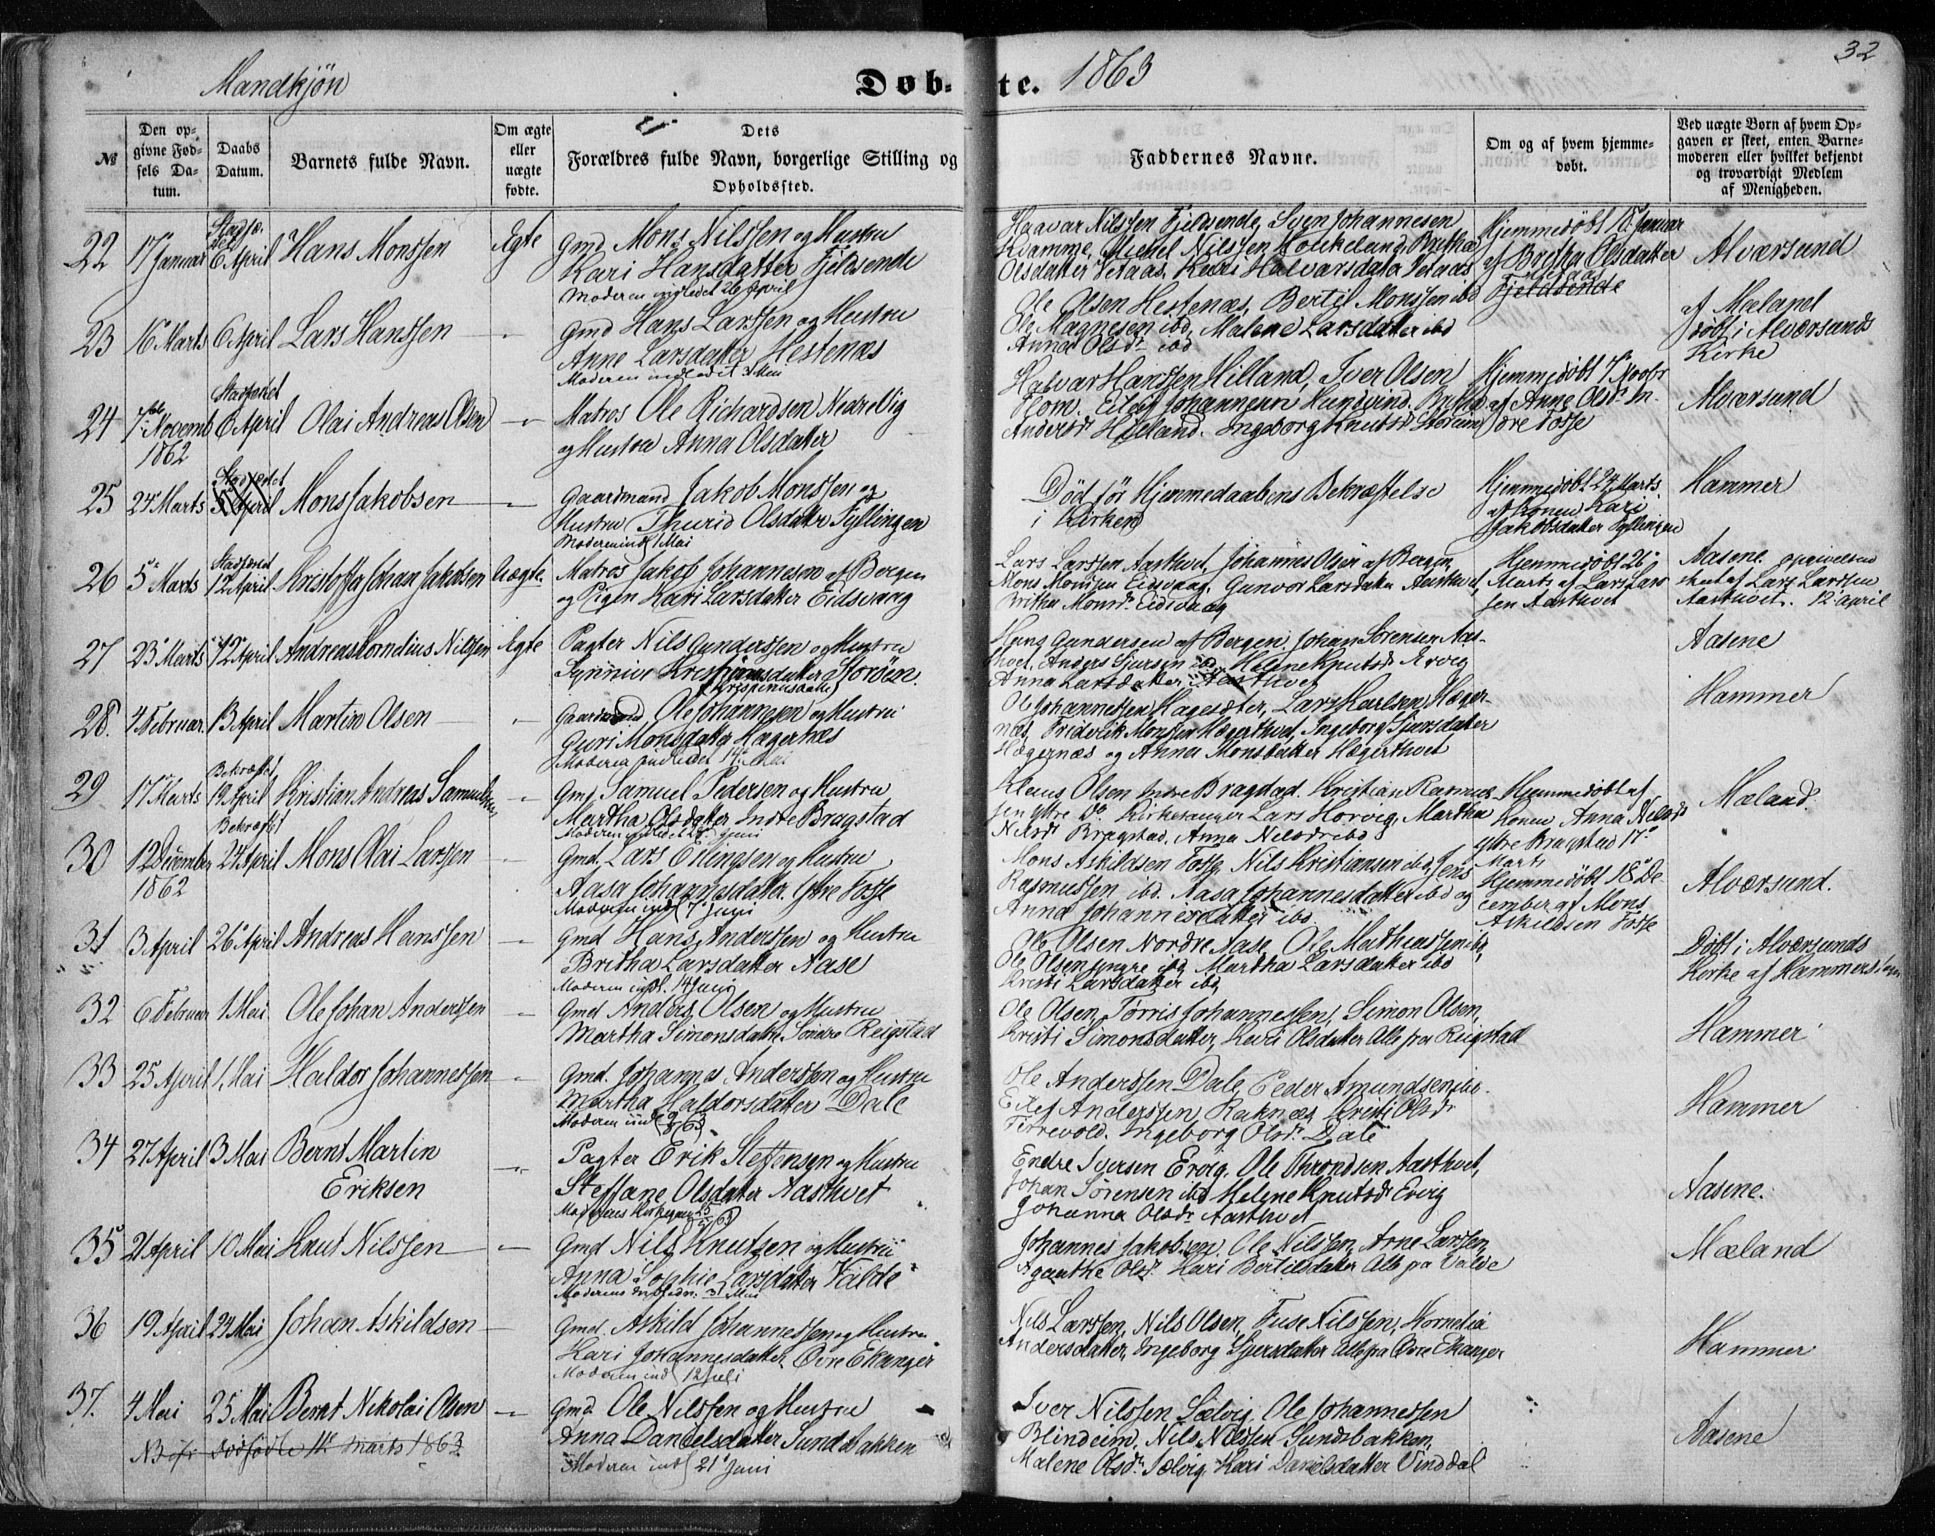 32
Mandkjøn
Døb-
te.
1863
№
Den op-
givne Fød-
sels Da-
tum.
Daabs
Datum.
Barnets fulde Navn.
Om ægte
eller
uægte
fødte.
Dets
Forældres fulde Navn, borgerlige Stilling og
Opholdssted.
Faddernes Navne.
Om og af hvem hjemme-
døbt.
Ved uægte Børn af hvem Op-
gaven er skeet, enten Barne-
moderen eller hvilket bekjendt
og troværdigt Medlem
af Menigheden.
22
17 Januar
6 April
Hans Monssen
Egte
Gmd Mons Nilssen og Hustru
Kari Hansdatter Fjeldsende
Moderen indledet 26 April
Haavar Nilssen Fjeldsende, Sven Johannesen
Kvamme, Mickel Nilssen Molikeland, Britha
Olsdatter Vetaas, Kari Halvarsdatter Vetaas
Hjemmedøbt 18 Januar
af Britha Olsdatter
Vetaas
Fjeldsende
Alværsund
23
16 Marts
6 April
Lars Hanssen
Gmd Hans Larssen og Hustru
Anne Larsdatter Hestenæs
Moderen indledet 3 Mai
Ole Olsen Hestenæs, Bertil Monssen ibd
Ole Magnesen ibd, Malene Larsdatter ibd
Anna Olsdr ibd
af Mæland
døbt i Alværsunds
Kirke
24
7de Novemb
1862
Stadfæstet
6 April
Olai Andreas Olsen
Matros Ole Richardsen Nedre Vig
og Hustru Anna Olsdatter
Halvar Hanssen Hilland, Iver Olsen
Hjemmedøbt 7 Novbr
af Anne Olsdr In-
dre Fosse
Alværsund
25
24 Marts
Stadfæstet
April
Mons Jakobsen
Gaardmand Jakob Monssen og
Hustru Thurid Olsdatter Fyllingen
Moderen ind 1 Mai
Død før Hjemmedaabens Bekræftelse
i Kirken
Hjemmedøbt 24 Marts
af Konen Kari
Jakobsdatter Fyllingen
Hammer
26
5 Marts
Stadfæstet
12 April
Kristoffer Johan Jakobsen
Uægte
Matros Jakob Johannesen af Bergen
og Pigen Kari Larsdatter Eidsvaag
Lars Larssen Aasthvet, Johannes Olsen af Bergen,
Mons Monssen Eidsvaag, Gunvor Larsdatter Aasthvet,
Britha Monsdr Eidsvaag
Hjemmedøbt 26
Marts af Lars Lars
sen Aasthvet
Aasene opgivelsen
skeet af Lars Larssen
Aasthvet. 12 April
27
23 Marts
12 April
Andreas Kornelius Nilssen
Egte
Pagter Nils Gunderssen og Hustru
Hans Gundersen af Bergen, Johan Sørensen Aas-
thvet, Anders Sjursen ibd, Helene Knutsdr Ervig
Anna Larsdatter Aasthvet
Aasene
28
4 Februar
13 April
Martin Olsen
Gaardmand Ole Johannesen og Hustru
Guri Monsdatter Hagernæs
Moderen indledet 17 Mai
Ole Johannessen Hagesæter, Lars Karlsen Hæger-
næs, Friderik Monssen Hægerthvet, Ingeborg Sjursdatter
Hægernæs og Anna Monsdatter Hægerthvet
Hammer
29
17 Marts
Bekræftet
19 April
Kristian Andreas Samuelsen
Gmd Samuel Pedersen og Hustru
Martha Olsdatter Indre Bragstad
Klaus Olsen Indre Bragstad, Kristian Rasmus-
sen Ytre do Kirkesanger Lars Horvig, Martha
Nilsdr Bragstad, Anna Nilsdr ibd
Hjemmedøbt af
Konen Anna Nilsdr
Ytre Bragstad 17
Marts
Mæland.
30
12 December
1862
Bekræftet
24 April
Mons Olai Larssen
Gmd. Lars Erlingsen og Hustru
Aasa Johannesdatter Ytre Fosse
Moderen ind 7 Juni
Mons Askildsen Fosse, Nils Kristiansen ibd, Jens
Rasmussen ibd. Aasa Johannesdatter ibd og
Anna Johannesdatter ibd.
Hjemmedøbt 18 De-
cember af Mons
Askildsen Fosse
Alværsund.
31
3 April
26 April
Andreas Hanssen
Gmd Hans Anderssen og Hustru
Britha Larsdatter Aase
Moderen indl. 14 Juni
Ole Olsen Nordre Aase, Ole Mathiassen ibd,
Ole Olsen yngre ibd, Martha Larsdatter ibd
Kristi Larsdatter ibd
Døbt i Alværsunds
Kirke af Hammers Sogn
32
6 Februar
1 Mai
Ole Johan Anderssen
Gmd Anders Olsen og Hustru
Martha Simonsdatter Søndre Reigstad
Ole Olsen, Tørris Johannessen, Simon Olsen,
Kristi Simonsdatter, Kari Olsdatter Alle fra Reigstad
Hammer
33
25 April
1 Mai
Haldor Johannessen
Gmd. Johannes Anderssen og Hustru
Martha Haldorsdatter Dale
Ole Anderssen Dale, Peder Amundsen ibd.
Elef Anderssen Raknæs, Kristi Olsdr
Ingeborg Olsdr Dale
Hammer
34
27 April
3 Mai
Bernt Martin
Eriksen
Pagter Erik Steffensen og Hustru
Steffane Olsdatter Aasthvet
Endre Iversen Ervig, Ole Throndsen Aasthvet,
Johan Sørensen ibd Helene Knutsdr Ervig
Johanna Olsdr Aasthvet
Aasene.
35
21 April
10 Mai
Knut Nilssen
Gmd Nils Knutsen og Hustru
Anna Sophie Larsdatter Valde
Johannes Jakobsen, Ole Nilssen, Arne Larssen,
Aganthe Olsdr, Kari Bertilsdatter Alle fra Valde
Mæland
36
19 April
24 Mai
Johan Askildsen
Gmd. Askild Johannessen og Hustru
Kari Johannesdatter Øvre Ekanger
Moderen ind 12 Juli
Nils Larssen, Nils Olsen, Fuse Nilssen, Kornelia
Andersdatter, Ingeborg Sjursdatter Alle fra Øvre Ekanger
Hammer
37.
4 Mai
25 Mai
Bernt Nikolai Olsen
Gmd. Ole Nilssen og Hustru
Anna Danielsdatter Sundsbakken
Moderen ind 21 Juni
Iver Nilssen Sælvig, Ole Johannessen
Blindeim, Nils Nilssen Sundsbakken,
Malene Olsdr Sælvig Kari Danielsdatter Vinddal
Aasene